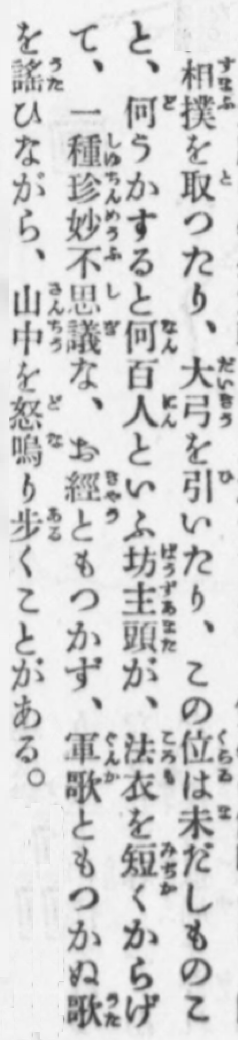 相撲を取つたり、大弓を引いたり、この位は未だしものこ
と、何うかすると何百人といふ坊主頭が、法衣を短くからげ
て、一種珍妙不思議な、お經ともつかず、軍歌ともつかぬ歌
を謠ひながら、山中を怒鳴り步くことがある。